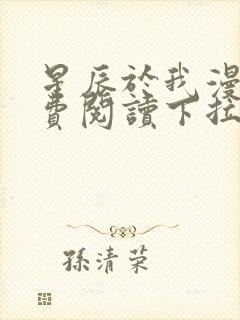 星辰於我漫
費閱讀下拉
孫清荣